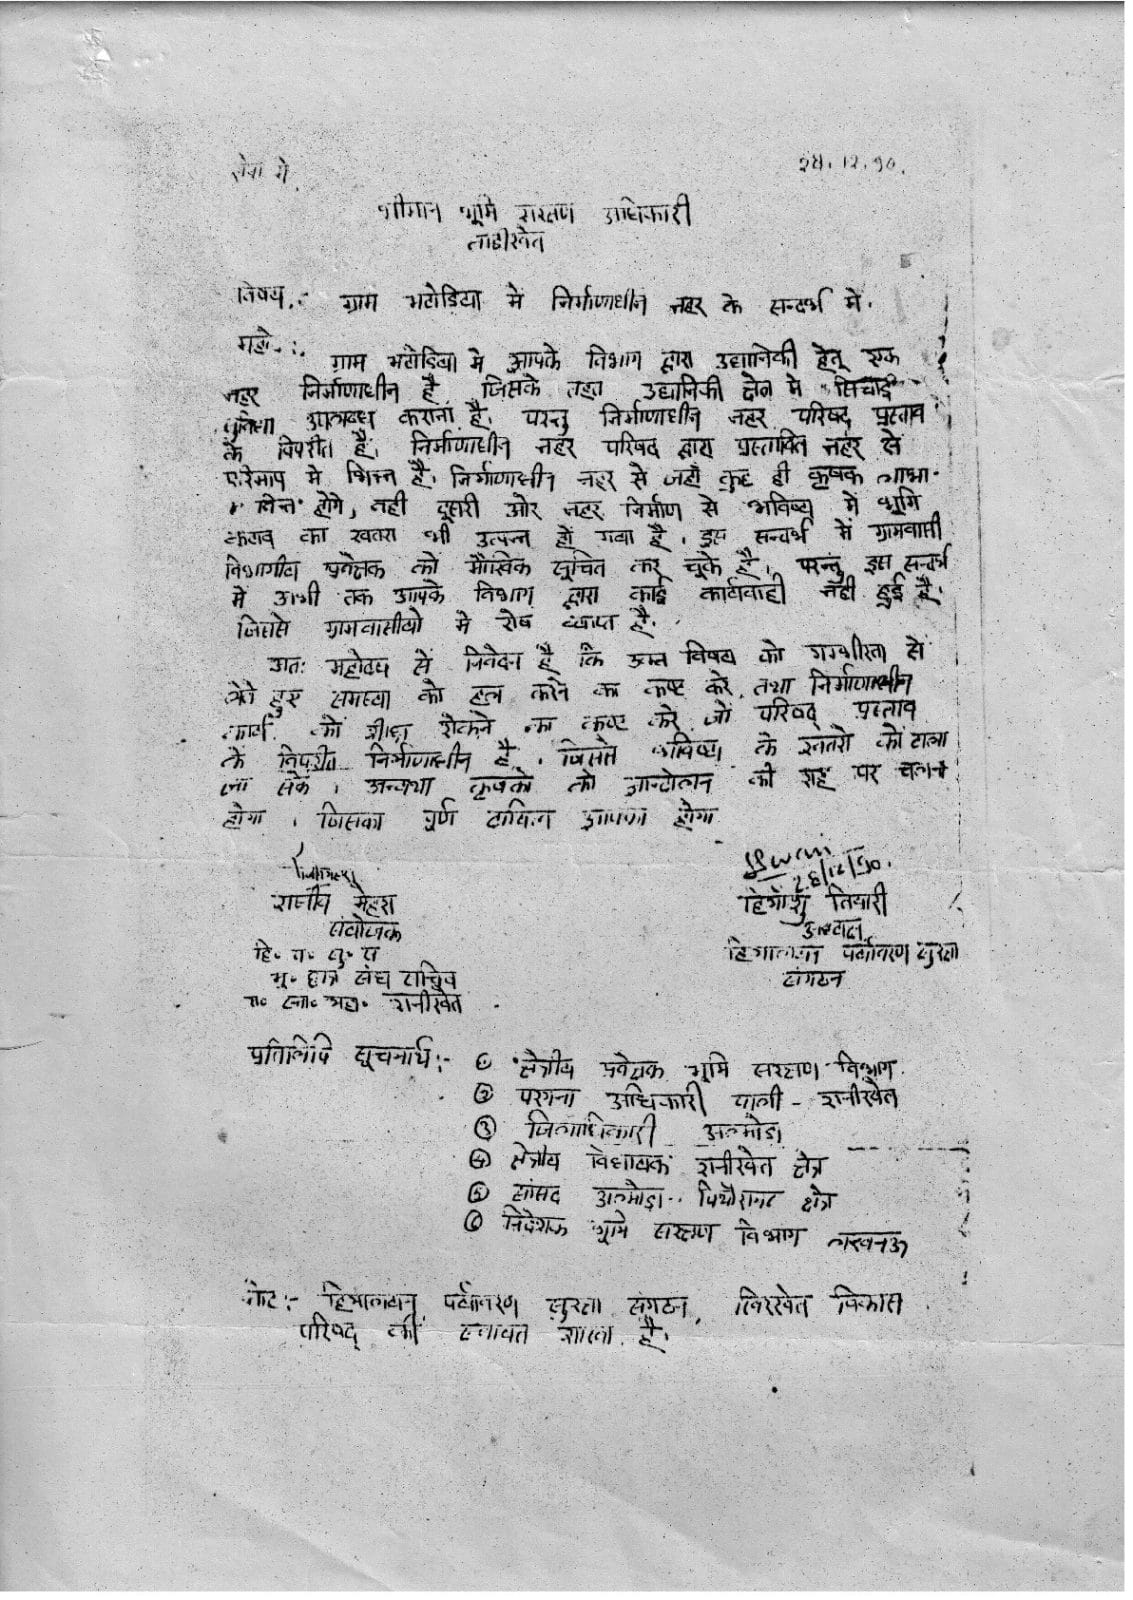 सेवा में,
२४.१२.९०.
श्रीमान भूमि संरक्षण अधिकारी
ताडीखेत
विषय :- ग्राम भटोडिया में निर्माणाधीन नहर के सन्दर्भ में.
महो. :
ग्राम भटोडिया में आपके विभाग द्वारा उद्यानिकी हेतू एक
नहर निर्माणाधीन है, जिसके तहत उद्यानिकी क्षेत्र में सिचाई
सुविधा उपलब्ध कराना है. परन्तु निर्माणाधीन नहर परिषद प्रस्ताव
के विपरीत है. निर्माणाधीन नहर परिषद द्वारा प्रस्तावित नहर से
परिमाप में भिन्न है. निर्माणाधीन नहर से जहाँ कुछ ही कृषक लाभा-
न्वित होंगे, वही दूसरी ओर नहर निर्माण से भविष्य में भूमि
कटाव का खतरा भी उत्पन्न हो गया है. इस सन्दर्भ में ग्रामवासी
विभागीय प्रवेक्षक को मौखिक सूचित कर चूके है. परन्तु इस सन्दर्भ
में अभी तक आपके विभाग द्वारा कोई कार्यवाही नहीं हुई है.
जिससे ग्रामवासीयो में रोष व्याप्त है.
अतः महोदय से निवेदन है कि उक्त विषय को गम्भीरता से
लेते हुए समस्या को हल करने का कष्ट करे, तथा निर्माणाधीन
कार्य को शीघ्र रोकने का कष्ट करे जो परिषद् प्रस्ताव
के विपरीत निर्माणाधीन है. जिससे भविष्य के खतरो को टाला
जा सके. अन्यथा कृषको को आन्दोलन की राह पर चलना
होगा. जिसका पूर्ण दायित्व आपका होगा
28/12/90.
राजीव मेहरा
संयोजक
हि. प. सु. स
भू. छात्र संघ सचिव
रा. स्ना. महा. रानीखेत
हिमांशु तिवारी
अध्यक्ष
हिमालयन पर्यावरण सुरक्षा
संगठन
प्रतिलिपि सूचनार्थ :- ① क्षेत्रीय प्रवेक्षक भूमि सरक्षण विभाग.
② परगना अधिकारी पाली - रानीखेत
③ जिलाधिकारी अल्मोडा
④ क्षेत्रीय विधायक रानीखेत क्षेत्र
⑤ सांसद अल्मोडा - पिथौरागढ क्षेत्र
⑥ निदेशक भूमि सरक्षण विभाग लखनऊ
नोट :- हिमालयन पर्यावरण सुरक्षा संगठन, विकास
परिषद् की स्वायत शाखा है.